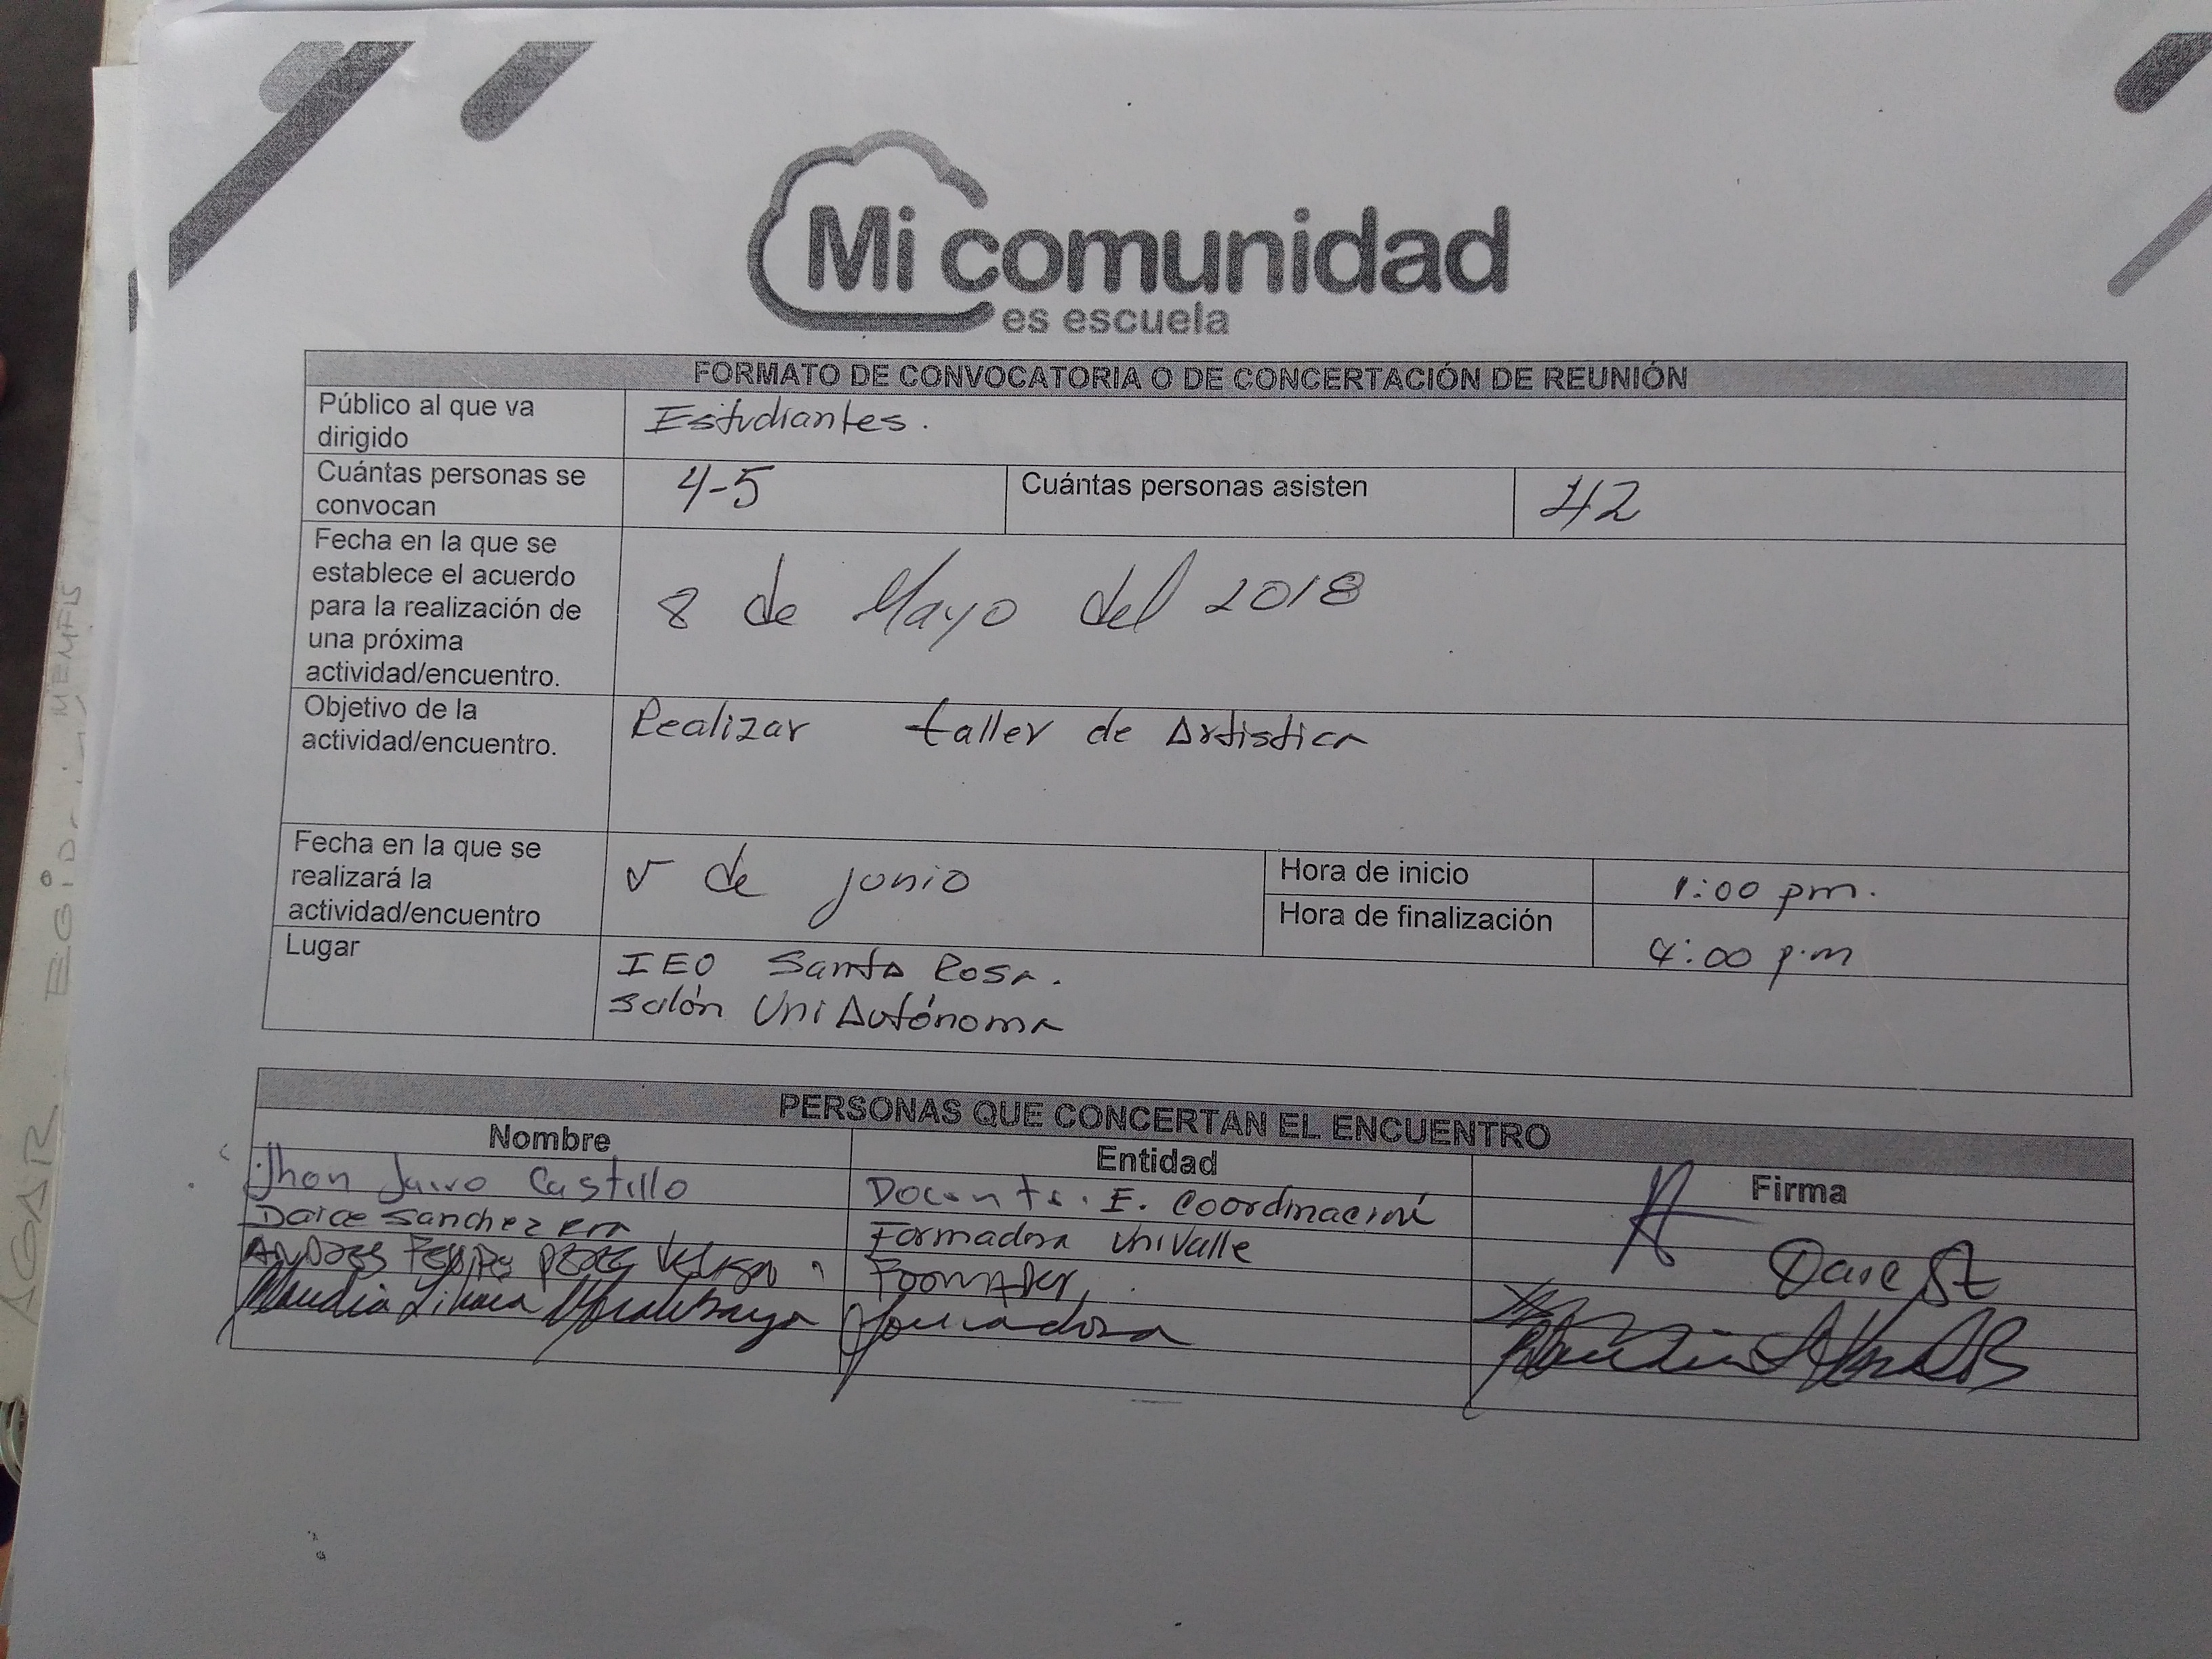 Mi comunidad
es escuela
FORMATO DE CONVOCATORIA O DE CONCERTACIÓN DE REUNIÓN
Público al que va
dirigido
Estudiantes.
Cuántas personas se
convocan
4-5
Cuántas personas asisten
42
Fecha en la que se
establece el acuerdo
para la realización de
una próxima
actividad/encuentro.
8 de Mayo del 2018
Objetivo de la
actividad/encuentro.
Realizar taller de Artistica
Fecha en la que se
realizará la
actividad/encuentro
5 de junio
Hora de inicio
1:00 pm.
Hora de finalización
4:00 p.m
Lugar
IEO Santa Rosa.
salón UniAutónoma
PERSONAS QUE CONCERTAN EL ENCUENTRO
Nombre
Entidad
Firma
Jhon Jairo Castillo
Docente. E. Coordinación
Darce Sanchez
Formadora UniValle
Andres Felipe Perez
Formador
Claudia Liliana
Formadora
AGAR EGIDO MENFIS